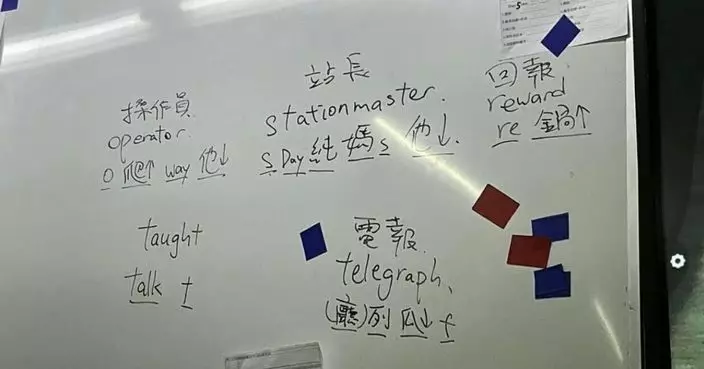 操作員
operator.
O 爬↑ way 他↓
站長
stationmaster.
S Day 純 媽 s 他↓.
回報
reward
re 鍋↑
taught
talk t
電報
telegraph、
(廳)列 爪↓ f